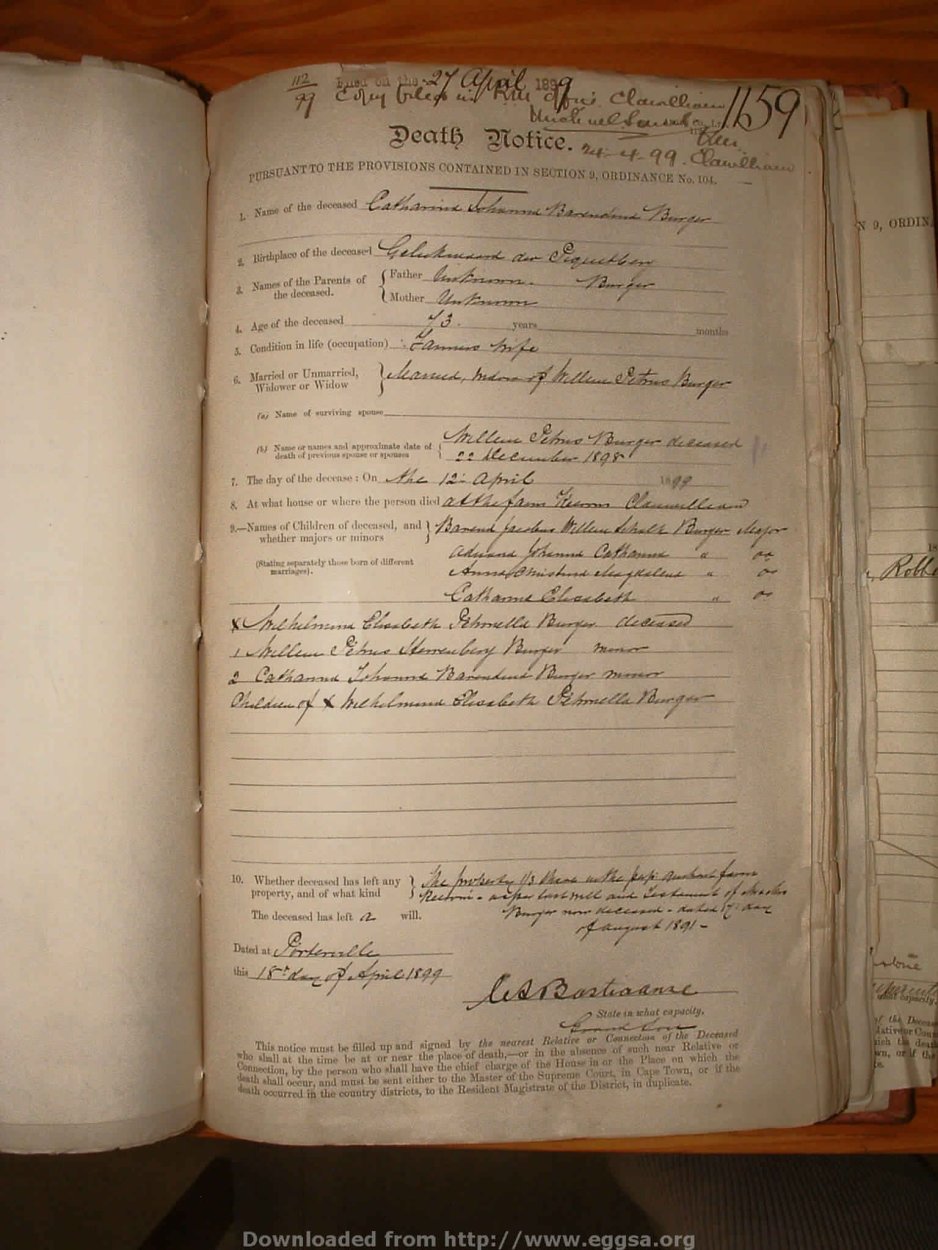 112
99
Filed on the 27 April 1899
Copy filed in R.M. Clanwilliam
1159
24-4-99. Clanwilliam
Death Notice.
PURSUANT TO THE PROVISIONS CONTAINED IN SECTION 9, ORDINANCE No. 104.
1. Name of the deceased Catharina Johanna Barendina Burger
2. Birthplace of the deceased
3. Names of the Parents of the deceased. Father Unknown. Burger
Mother Unknown
4. Age of the deceased 73. years months
5. Condition in life (occupation) Farmers Wife
6. Married or Unmarried, Widower or Widow Married, Widow of Willem Petrus Burger
(a) Name of surviving spouse
(b) Name or names and approximate date of death of previous spouse or spouses Willem Petrus Burger deceased
22 December 1898
7. The day of the decease: On the 12: April 1899
8. At what house or where the person died at the farm Clanwilliam
9.—Names of Children of deceased, and whether majors or minors Barend Jacobus Willem Schalk Burger Major
(Stating separately those born of different marriages). Adriana Johanna Catharina " do
Anna Christina Magdalena " do
Catharina Elisabeth " do
x Wilhelmina Elisabeth Petronella Burger deceased
1 Willem Petrus Burger minor
2 Catharina Johanna Barendina Burger minor
Children of x Wilhelmina Elisabeth Petronella Burger
10. Whether deceased has left any property, and of what kind The property 1/3 share in the farm
as per last will and Testament of
The deceased has left a will. Burger now deceased - dated 17: day
of august 1891 -
Dated at Porterville
this 18th day of April 1899
Bastiaanse
State in what capacity.
Grand Son
This notice must be filled up and signed by the nearest Relative or Connection of the Deceased
who shall at the time be at or near the place of death,—or in the absence of such near Relative or
Connection, by the person who shall have the chief charge of the House in or the Place on which the
death shall occur, and must be sent either to the Master of the Supreme Court, in Cape Town, or if the
death occurred in the country districts, to the Resident Magistrate of the District, in duplicate.
N 9, ORDIN
Downloaded from http://www.eggsa.org